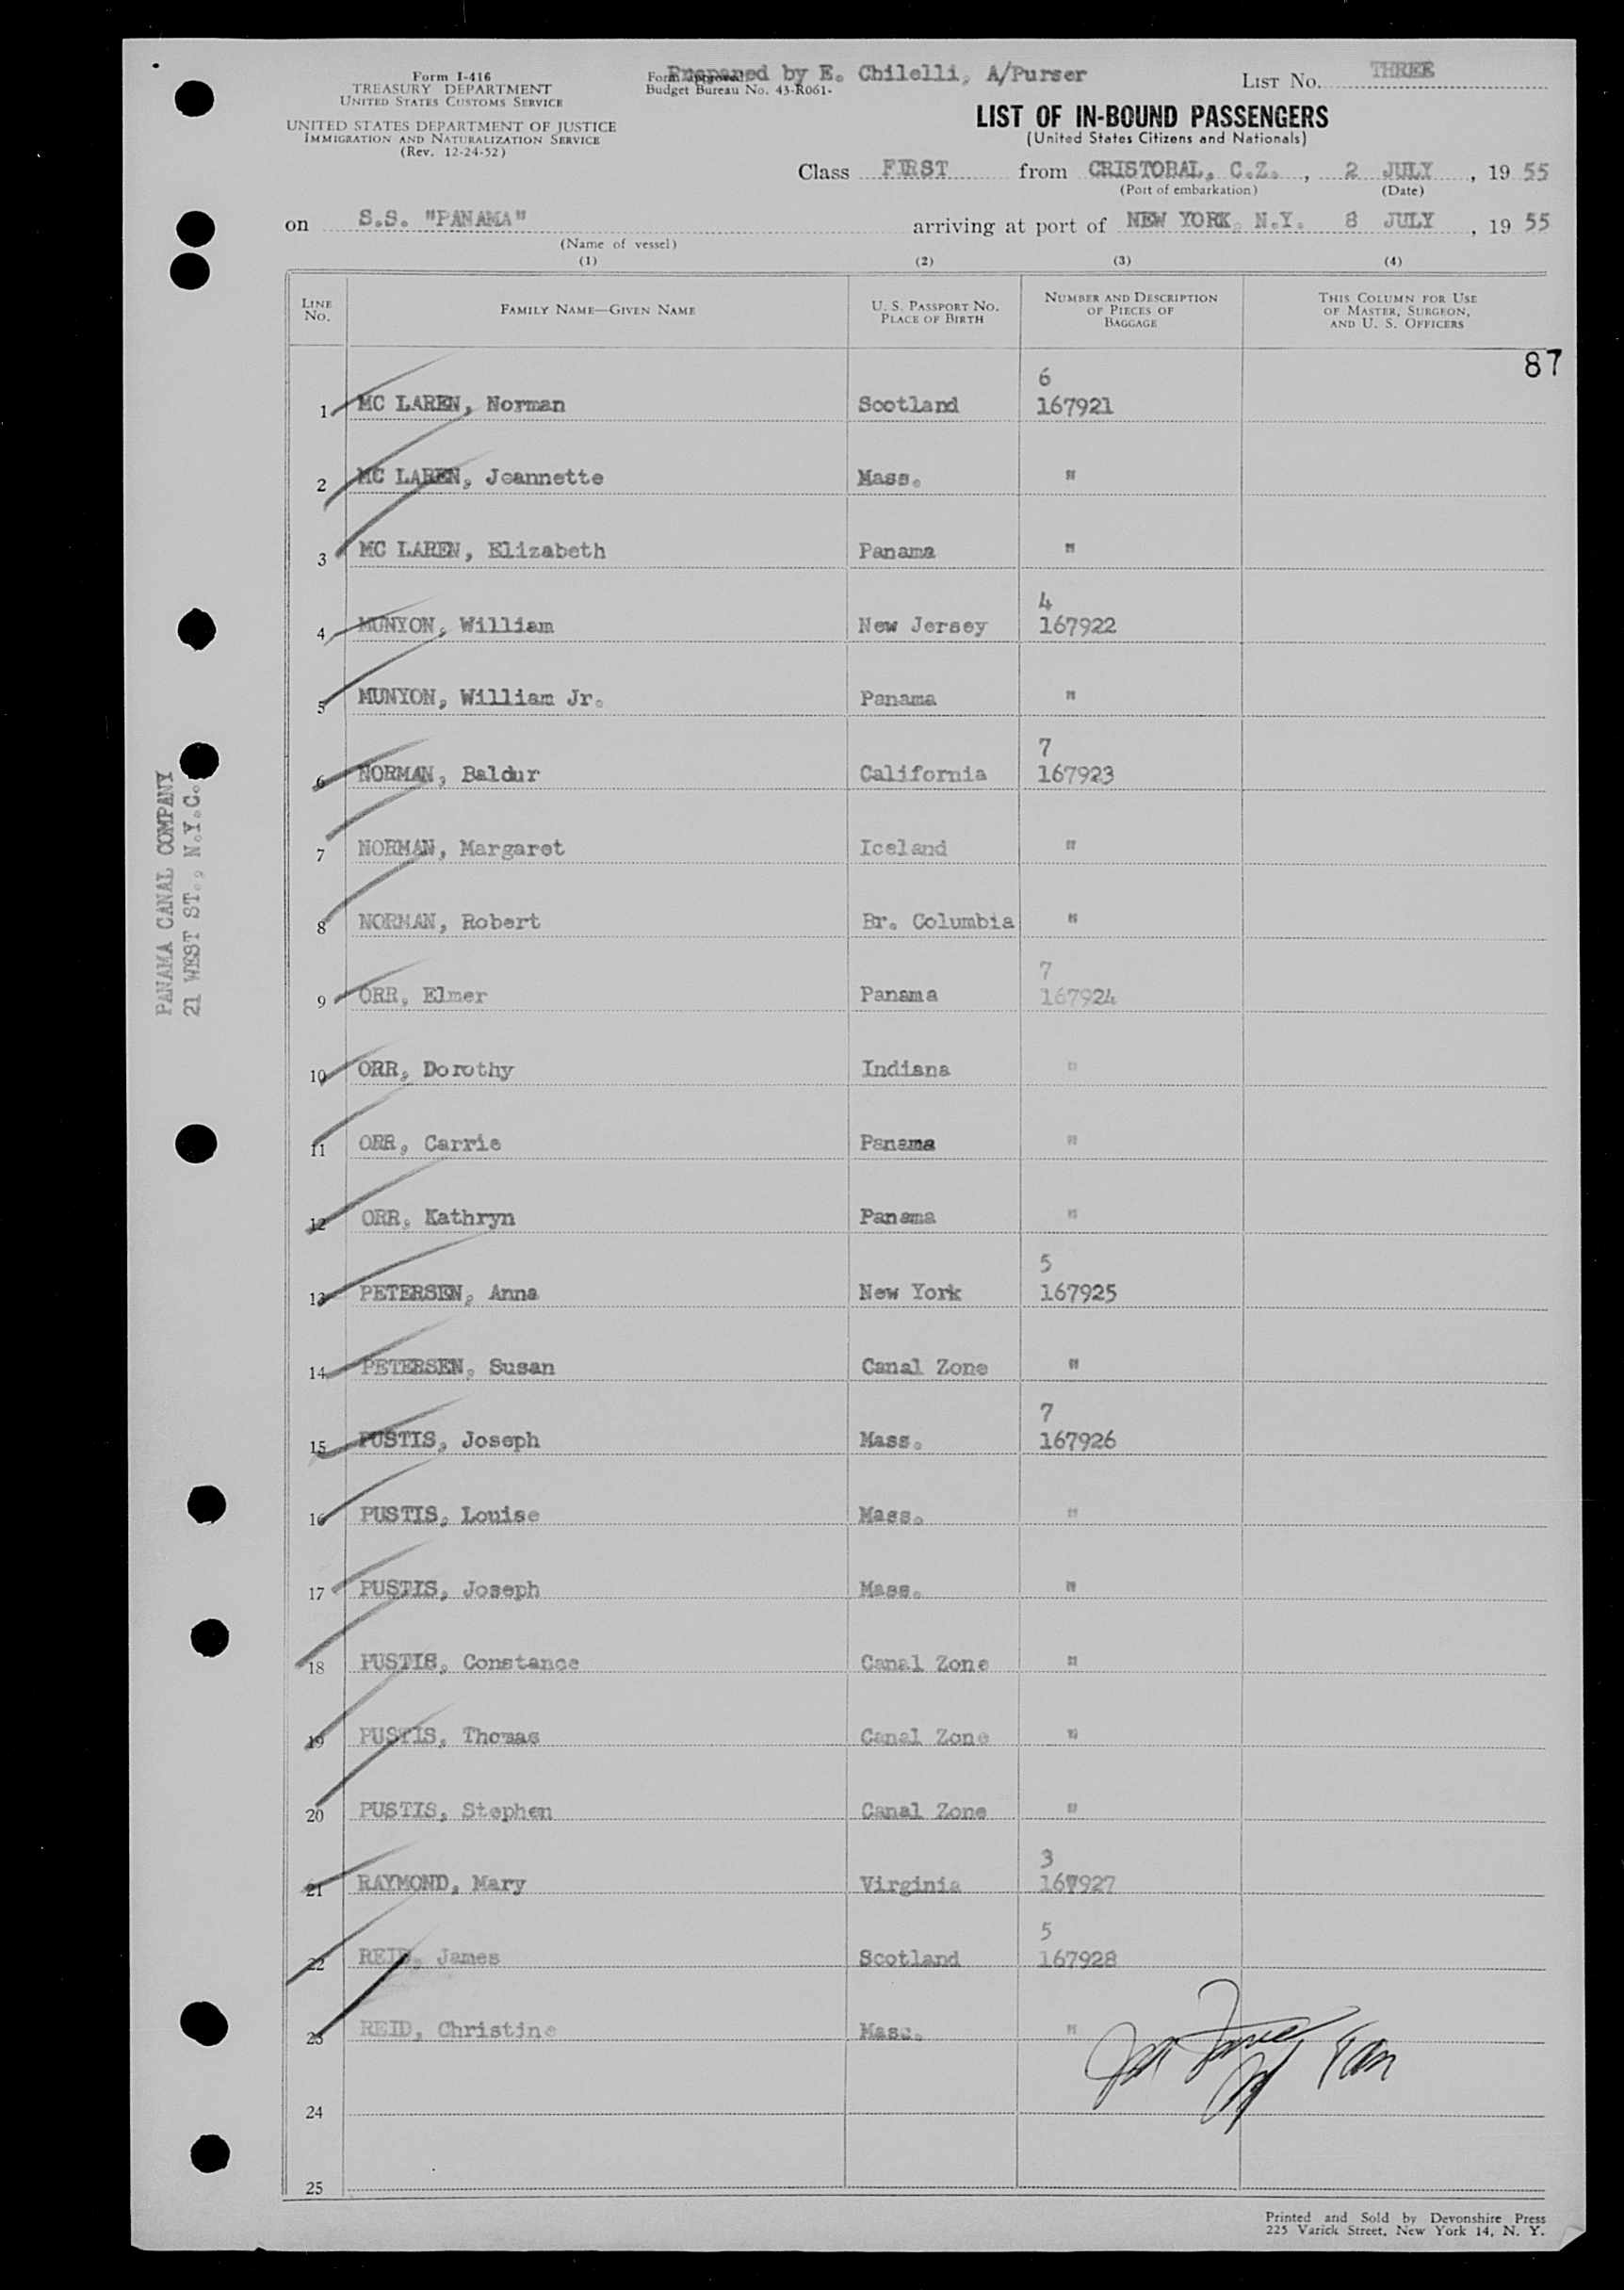 Form I-416
TREASURY DEPARTMENT
UNITED STATES CUSTOMS SERVICE
UNITED STATES DEPARTMENT OF JUSTICE
IMMIGRATION AND NATURALIZATION SERVICE
(Rev. 12-24-52)
Form approved.
Budget Bureau No. 43-R061-
Prepared by E. Chilelli, A/Purser
LIST NO. THREE
LIST OF IN-BOUND PASSENGERS
(United States Citizens and Nationals)
Class FIRST from CRISTOBAL, C.Z. , 2 JULY , 19 55
(Port of embarkation) (Date)
on S.S. "PANAMA" arriving at port of NEW YORK, N.Y. 8 JULY , 19 55
(Name of vessel)
(1) (2) (3) (4)
LINE NO. FAMILY NAME—GIVEN NAME U. S. PASSPORT NO. PLACE OF BIRTH NUMBER AND DESCRIPTION OF PIECES OF BAGGAGE THIS COLUMN FOR USE OF MASTER, SURGEON, AND U. S. OFFICERS
87
6
1 MC LAREN, Norman Scotland 167921
2 MC LAREN, Jeannette Mass. "
3 MC LAREN, Elizabeth Panama "
4
4 MUNYON, William New Jersey 167922
5 MUNYON, William Jr. Panama "
7
6 NORMAN, Baldur California 167923
7 NORMAN, Margaret Iceland "
8 NORMAN, Robert Br. Columbia "
7
9 ORR, Elmer Panama 167924
10 ORR, Dorothy Indiana "
11 ORR, Carrie Panama "
12 ORR, Kathryn Panama "
5
13 PETERSEN, Anna New York 167925
14 PETERSEN, Susan Canal Zone "
7
15 PUSTIS, Joseph Mass. 167926
16 PUSTIS, Louise Mass. "
17 PUSTIS, Joseph Mass. "
18 PUSTIS, Constance Canal Zone "
19 PUSTIS, Thomas Canal Zone "
20 PUSTIS, Stephen Canal Zone "
3
21 RAYMOND, Mary Virginia 167927
5
22 REID, James Scotland 167928
23 REID, Christine Mass. "
24
25
PANAMA CANAL COMPANY
21 WEST ST., N.Y.C.
Printed and Sold by Devonshire Press
225 Varick Street, New York 14, N. Y.